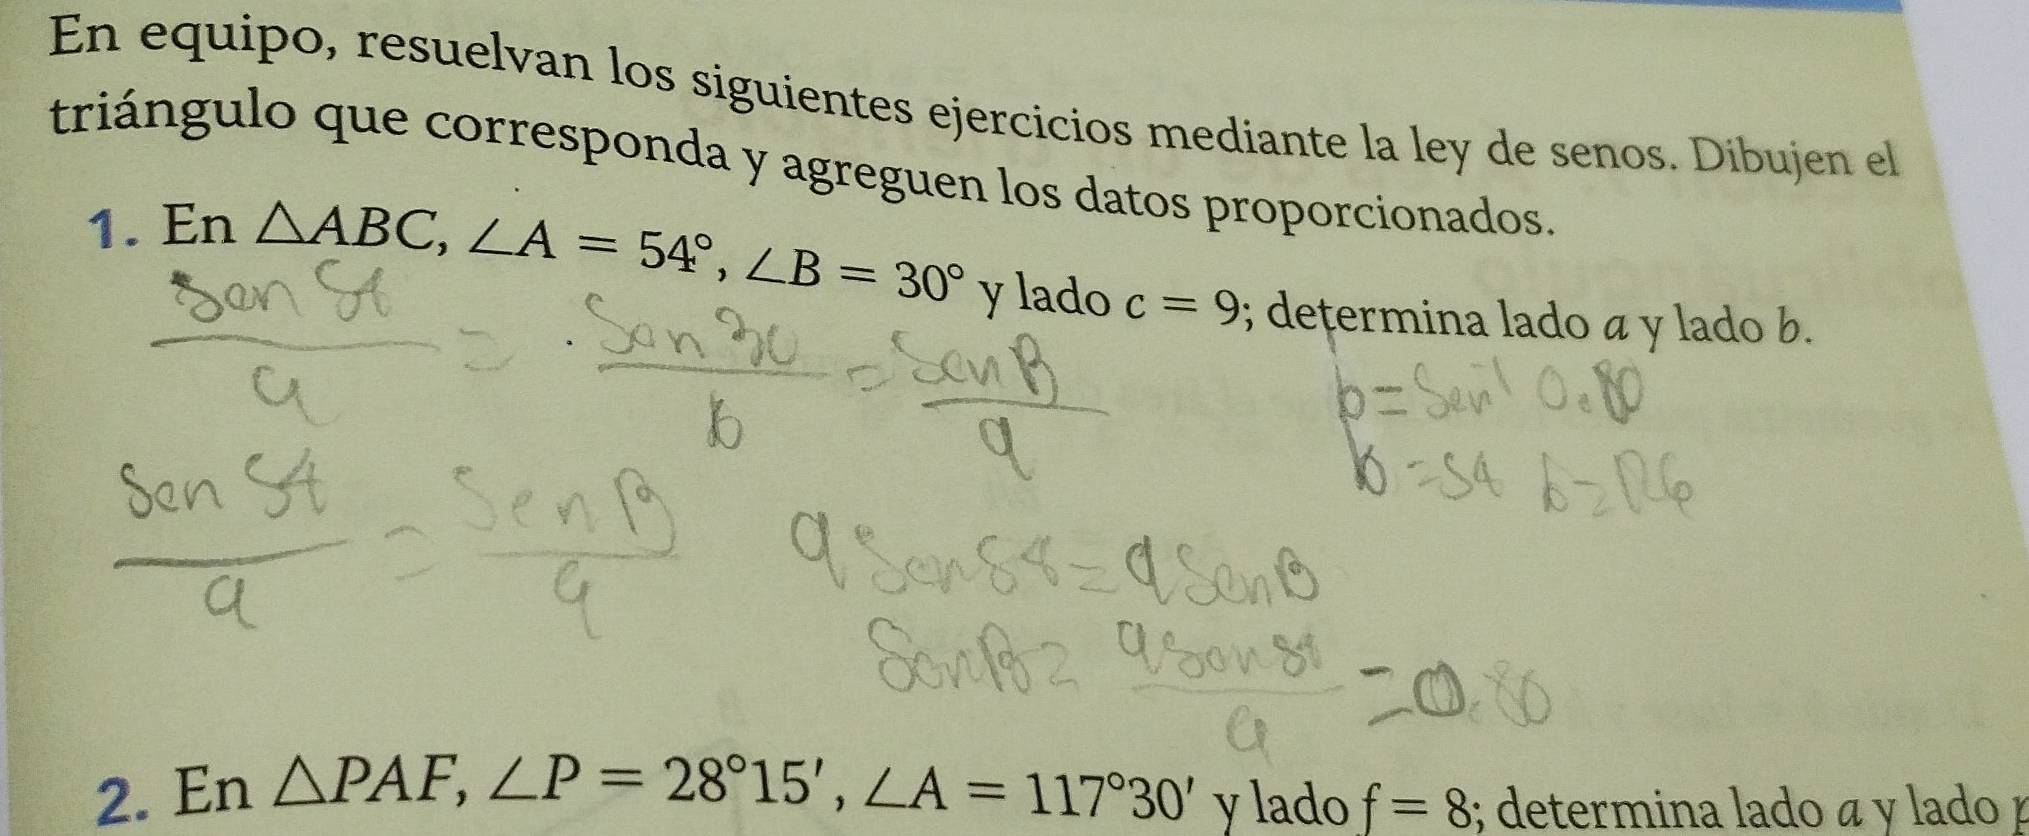 En equipo, resuelvan los siguientes ejercicios mediante la ley de senos. Dibujen el
triángulo que corresponda y agreguen los datos proporcionados.
1. En △ABC, ∠A = 54°, ∠B = 30° y lado c = 9; determina lado a y lado b.
Sen 54 / a = Sen 30 / b = Sen B / 9
b = Sen⁻¹ 0.80
b = 54 b = 126
Sen 54 / a = Sen B / 9
9 Sen 54 = 9 Sen B
Sen B = 9 Sen 54 / 9 = 0.80
2. En △PAF, ∠P = 28°15′, ∠A = 117°30′ y lado f = 8; determina lado a y lado p